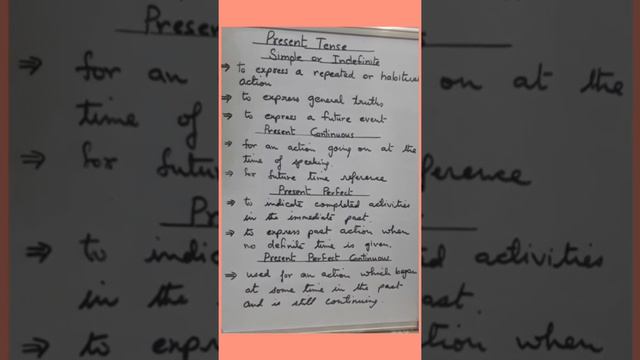 Present Tense
Simple or Indefinite
⇒ to express a repeated or habitual
action
⇒ to express general truths
⇒ to express a future event
Present Continuous
⇒ for an action going on at the
time of speaking.
⇒ for future time reference
Present Perfect
⇒ to indicate completed activities
in the immediate past.
⇒ to express past action when
no definite time is given.
Present Perfect Continuous
⇒ used for an action which began
at some time in the past
and is still continuing.